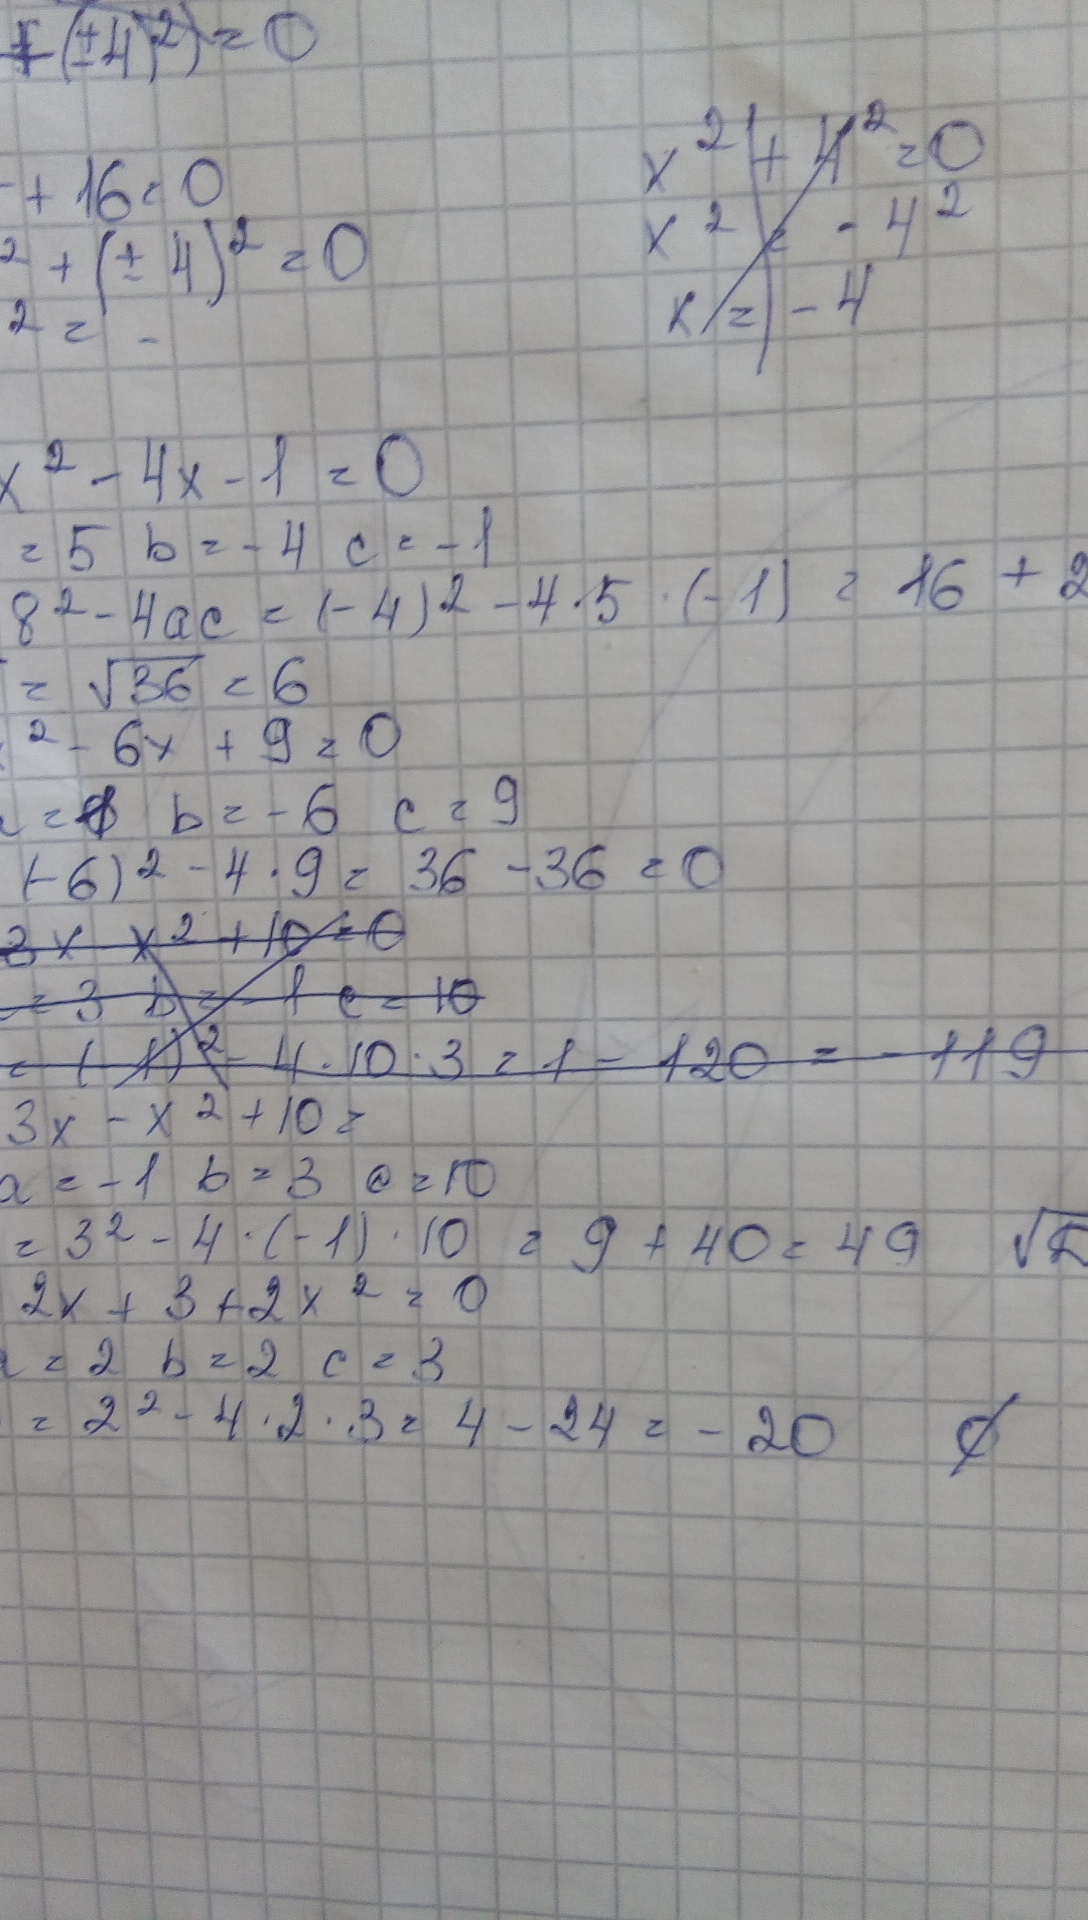 (±4)²) = 0
+ 16 = 0
² + (± 4)² = 0
² = -
x² + 4² = 0
x² = - 4²
x = - 4
x² - 4x - 1 = 0
= 5 b = - 4 c = - 1
8² - 4ac = (-4)² - 4·5·(-1) = 16 + 2
= √36 = 6
² - 6x + 9 = 0
= b = - 6 c = 9
(-6)² - 4·9 = 36 - 36 = 0
3x x² + 10 = 0
= 3 b = - 1 c = 10
= (-1)² - 4·10·3 = 1 - 120 = - 119
3x - x² + 10 =
a = - 1 b = 3 c = 10
= 3² - 4·(-1)·10 = 9 + 40 = 49 √
2x + 3 + 2x² = 0
= 2 b = 2 c = 3
= 2² - 4·2·3 = 4 - 24 = - 20 ∅